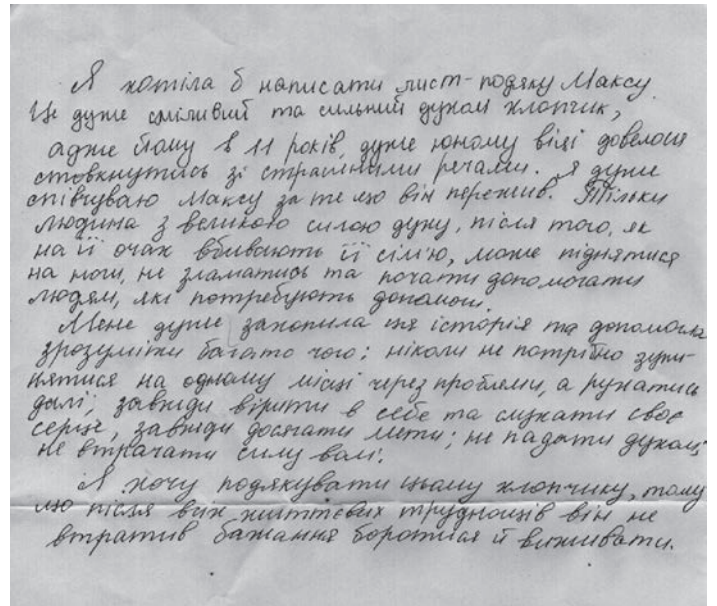 Я хотіла б написати лист-подяку Максу
Це дуже сміливий та сильний духом хлопчик,
адже йому в 11 років, дуже юному віці довелося
стовкнутись зі страшними речами. Я дуже
співчуваю Максу за те що він пережив. Тільки
людина з великою силою духу, після того, як
на її очах вбивають її сім'ю, може піднятися
на ноги, не зламатись та почати допомагати
людям, які потребують допомоги.
Мене дуже захопила ця історія та допомогла
зрозуміти багато чого: ніколи не потрібно зупи-
нятися на одному місці через проблеми, а рухатись
далі; завжди вірити в себе та слухати своє
серце, завжди досягати мети; не падати духом;
не втрачати силу волі.
Я хочу подякувати цьому хлопчику, тому
що після всіх життєвих труднощів він не
втратив бажання боротися й виживати.